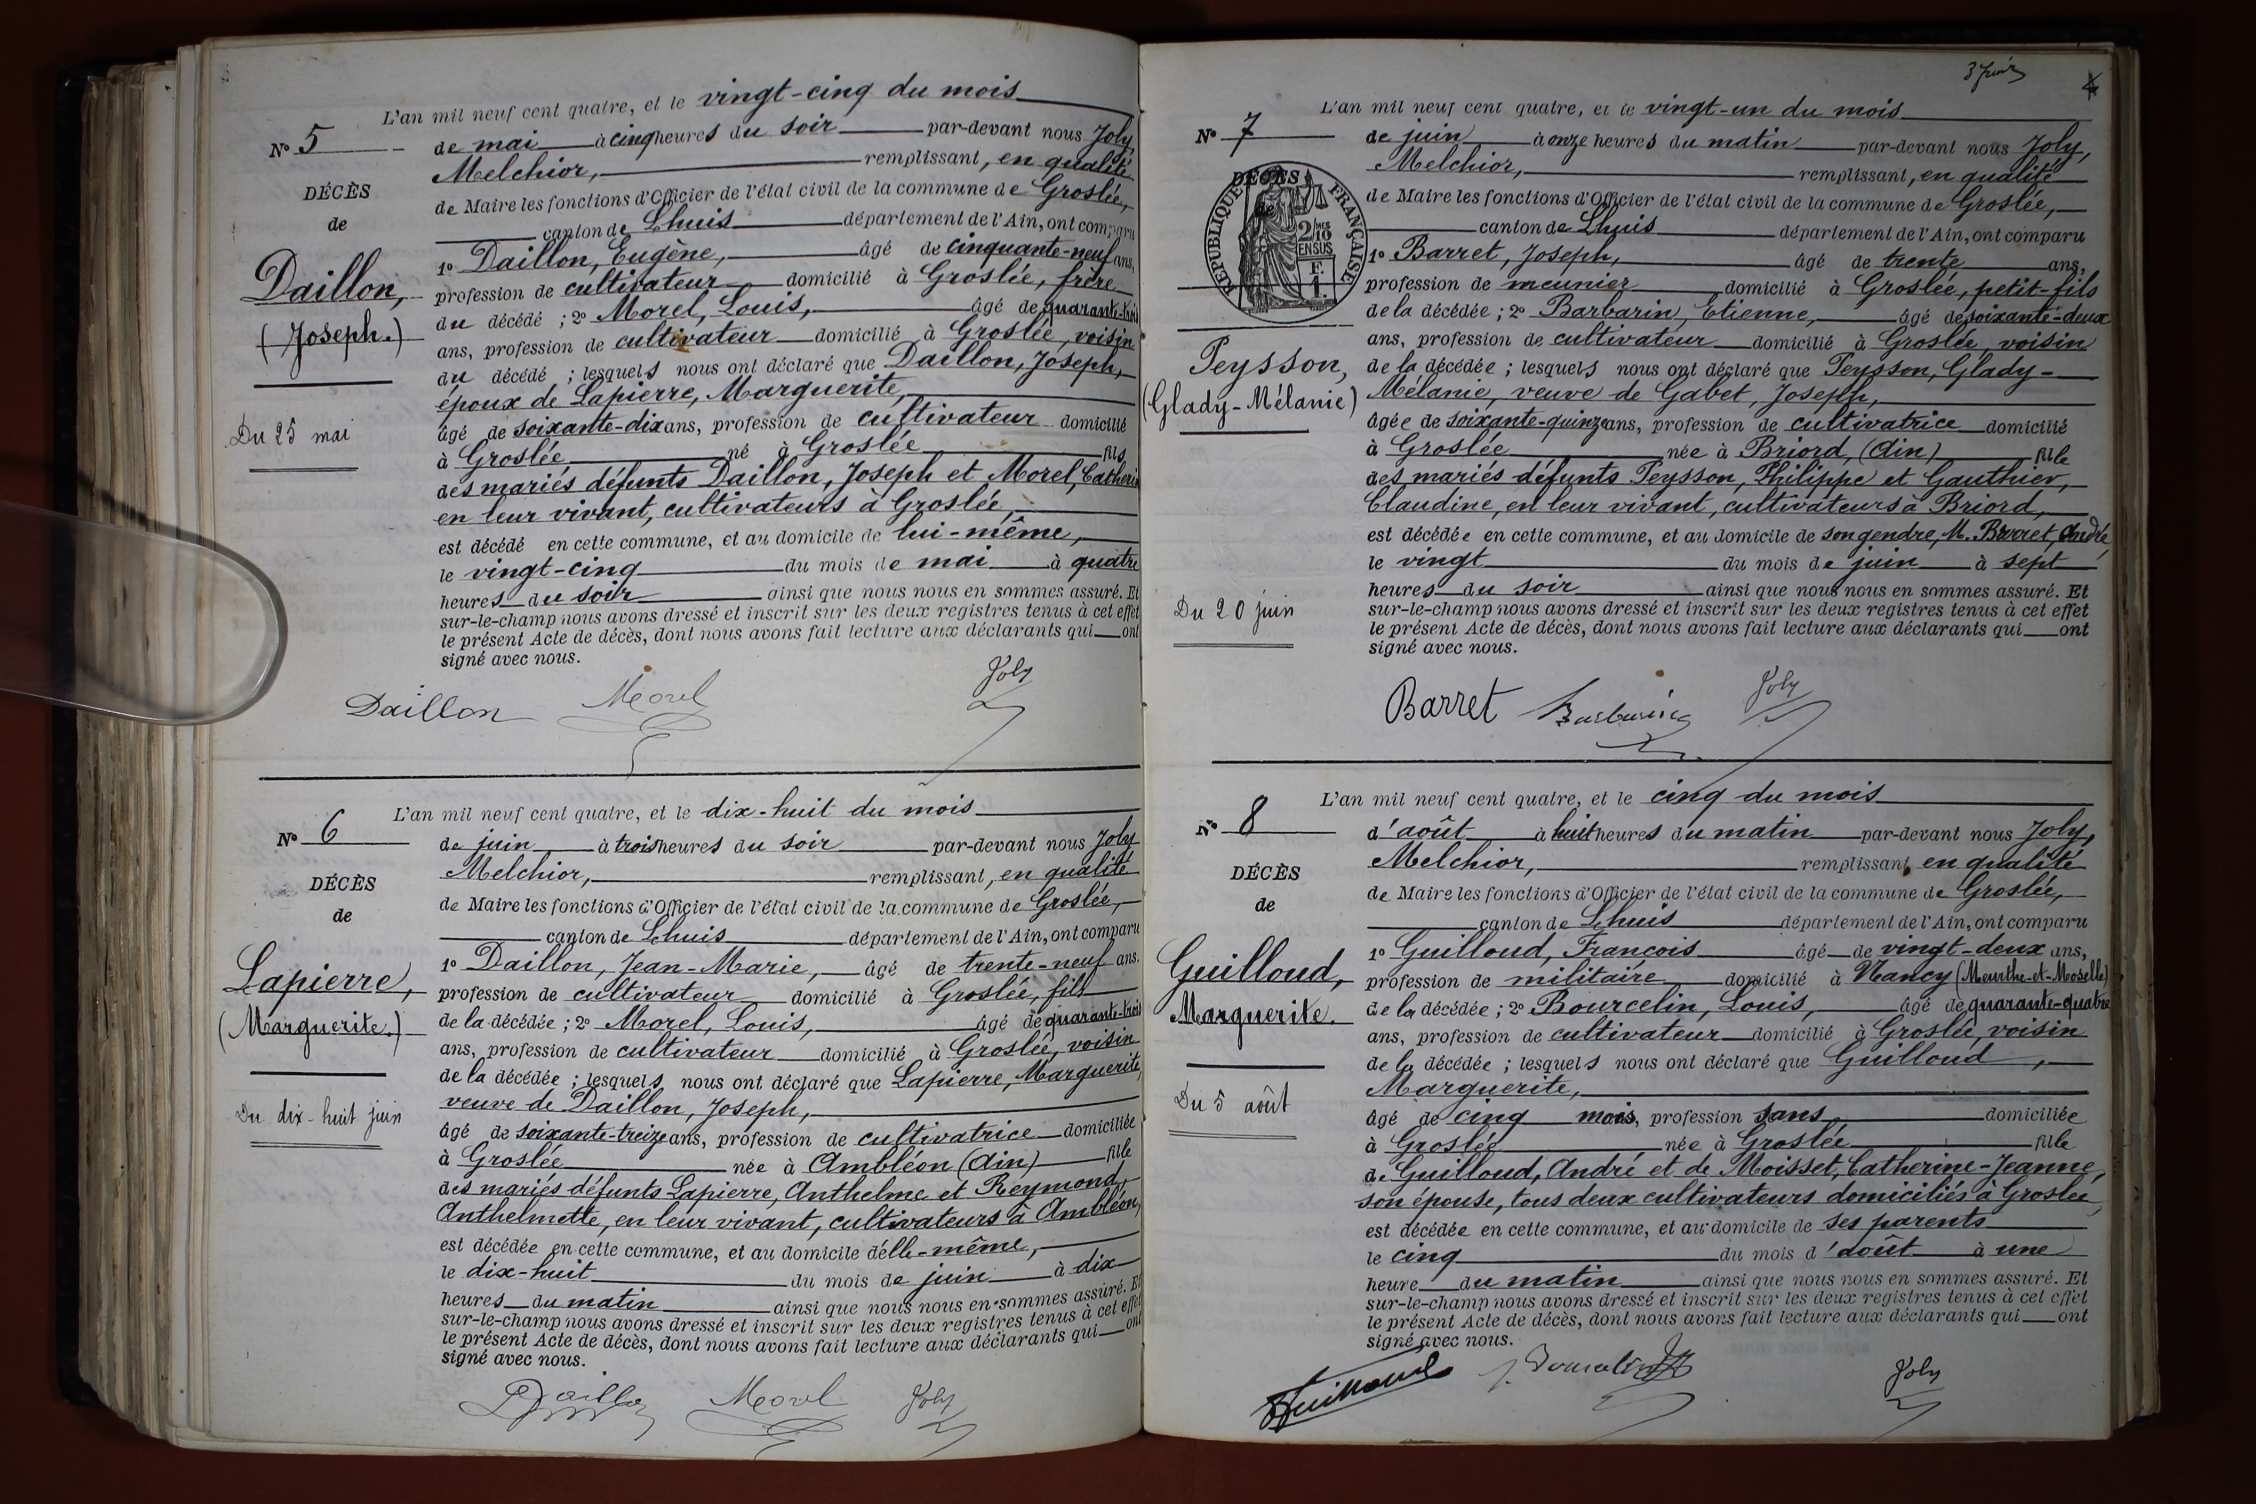 L'an mil neuf cent quatre, et le vingt-cinq du mois
N° 5
de mai à cinq heures du soir par-devant nous Joly,
Melchior, remplissant, en qualité
DÉCÈS
de Maire les fonctions d'Officier de l'état civil de la commune de Groslée,
de
canton de Lhuis département de l'Ain, ont comparu
1° Daillon, Eugène, âgé de cinquante-neuf ans,
Daillon,
profession de cultivateur domicilié à Groslée, frère
du décédé ; 2° Morel, Louis, âgé de quarante-trois
(Joseph.)
ans, profession de cultivateur domicilié à Groslée, voisin
du décédé ; lesquels nous ont déclaré que Daillon, Joseph,
époux de Lapierre, Marguerite,
Du 25 mai
âgé de soixante-dix ans, profession de cultivateur domicilié
à Groslée né à Groslée fils
des mariés défunts Daillon, Joseph et Morel, Catherine
en leur vivant, cultivateurs à Groslée,
est décédé en cette commune, et au domicile de lui-même,
le vingt-cinq du mois de mai à quatre
heures du soir ainsi que nous nous en sommes assuré. Et
sur-le-champ nous avons dressé et inscrit sur les deux registres tenus à cet effet
le présent Acte de décès, dont nous avons fait lecture aux déclarants qui ont
signé avec nous.
Daillon Morel Joly
L'an mil neuf cent quatre, et le dix-huit du mois
N° 6
de juin à trois heures du soir par-devant nous Joly
Melchior, remplissant, en qualité
DÉCÈS
de Maire les fonctions d'Officier de l'état civil de la commune de Groslée,
de
canton de Lhuis département de l'Ain, ont comparu
1° Daillon, Jean-Marie, âgé de trente-neuf ans.
Lapierre,
profession de cultivateur domicilié à Groslée, fils
(Marguerite.)
de la décédée ; 2° Morel, Louis, âgé de quarante-trois
ans, profession de cultivateur domicilié à Groslée, voisin
de la décédée ; lesquels nous ont déclaré que Lapierre, Marguerite,
veuve de Daillon, Joseph,
Du dix-huit juin
âgé de soixante-treize ans, profession de cultivatrice domiciliée
à Groslée née à Ambléon (Ain) fille
des mariés défunts Lapierre, Anthelme et Reymond,
Anthelmette, en leur vivant, cultivateurs à Ambléon,
est décédée en cette commune, et au domicile d'elle-même,
le dix-huit du mois de juin à dix
heures du matin ainsi que nous nous en sommes assuré. Et
sur-le-champ nous avons dressé et inscrit sur les deux registres tenus à cet effet
le présent Acte de décès, dont nous avons fait lecture aux déclarants qui ont
signé avec nous.
Daillon Morel Joly
L'an mil neuf cent quatre, et le vingt-un du mois
N° 7
de juin à onze heures du matin par-devant nous Joly,
Melchior, remplissant, en qualité
DÉCÈS
de
RÉPUBLIQUE FRANÇAISE
2/10 EN SUS
F. 1.
de Maire les fonctions d'Officier de l'état civil de la commune de Groslée,
canton de Lhuis département de l'Ain, ont comparu
1° Barret, Joseph, âgé de trente ans,
profession de meunier domicilié à Groslée, petit-fils
de la décédée ; 2° Barbarin, Etienne, âgé de soixante-deux
ans, profession de cultivateur domicilié à Groslée voisin
Peysson,
de la décédée ; lesquels nous ont déclaré que Peysson, Glady-
(Glady-Mélanie)
Mélanie, veuve de Gabet, Joseph,
âgée de soixante-quinze ans, profession de cultivatrice domicilié
à Groslée née à Briord, (Ain) fille
des mariés défunts Peysson, Philippe et Gauthier,
Claudine, en leur vivant, cultivateurs à Briord,
est décédée en cette commune, et au domicile de son gendre, M. Barret, André,
le vingt du mois de juin à sept
heures du soir ainsi que nous nous en sommes assuré. Et
Du 20 juin
sur-le-champ nous avons dressé et inscrit sur les deux registres tenus à cet effet
le présent Acte de décès, dont nous avons fait lecture aux déclarants qui ont
signé avec nous.
Barret Barbarin Joly
L'an mil neuf cent quatre, et le cinq du mois
N° 8
d'août à huit heures du matin par-devant nous Joly,
Melchior, remplissant, en qualité
DÉCÈS
de Maire les fonctions d'Officier de l'état civil de la commune de Groslée,
de
canton de Lhuis département de l'Ain, ont comparu
1° Guilloud, François âgé de vingt-deux ans,
Guilloud,
profession de militaire domicilié à Nancy (Meurthe-et-Moselle)
Marguerite.
de la décédée ; 2° Bourcelin, Louis, âgé de quarante-quatre
ans, profession de cultivateur domicilié à Groslée, voisin
de la décédée ; lesquels nous ont déclaré que Guilloud,
Marguerite,
Du 5 août
âgé de cinq mois, profession sans domiciliée
à Groslée née à Groslée fille
de Guilloud, André et de Moisset, Catherine-Jeanne,
son épouse, tous deux cultivateurs domiciliés à Groslée,
est décédée en cette commune, et au domicile de ses parents
le cinq du mois d'août à une
heure du matin ainsi que nous nous en sommes assuré. Et
sur-le-champ nous avons dressé et inscrit sur les deux registres tenus à cet effet
le présent Acte de décès, dont nous avons fait lecture aux déclarants qui ont
signé avec nous.
Guilloud Bourcelin Joly